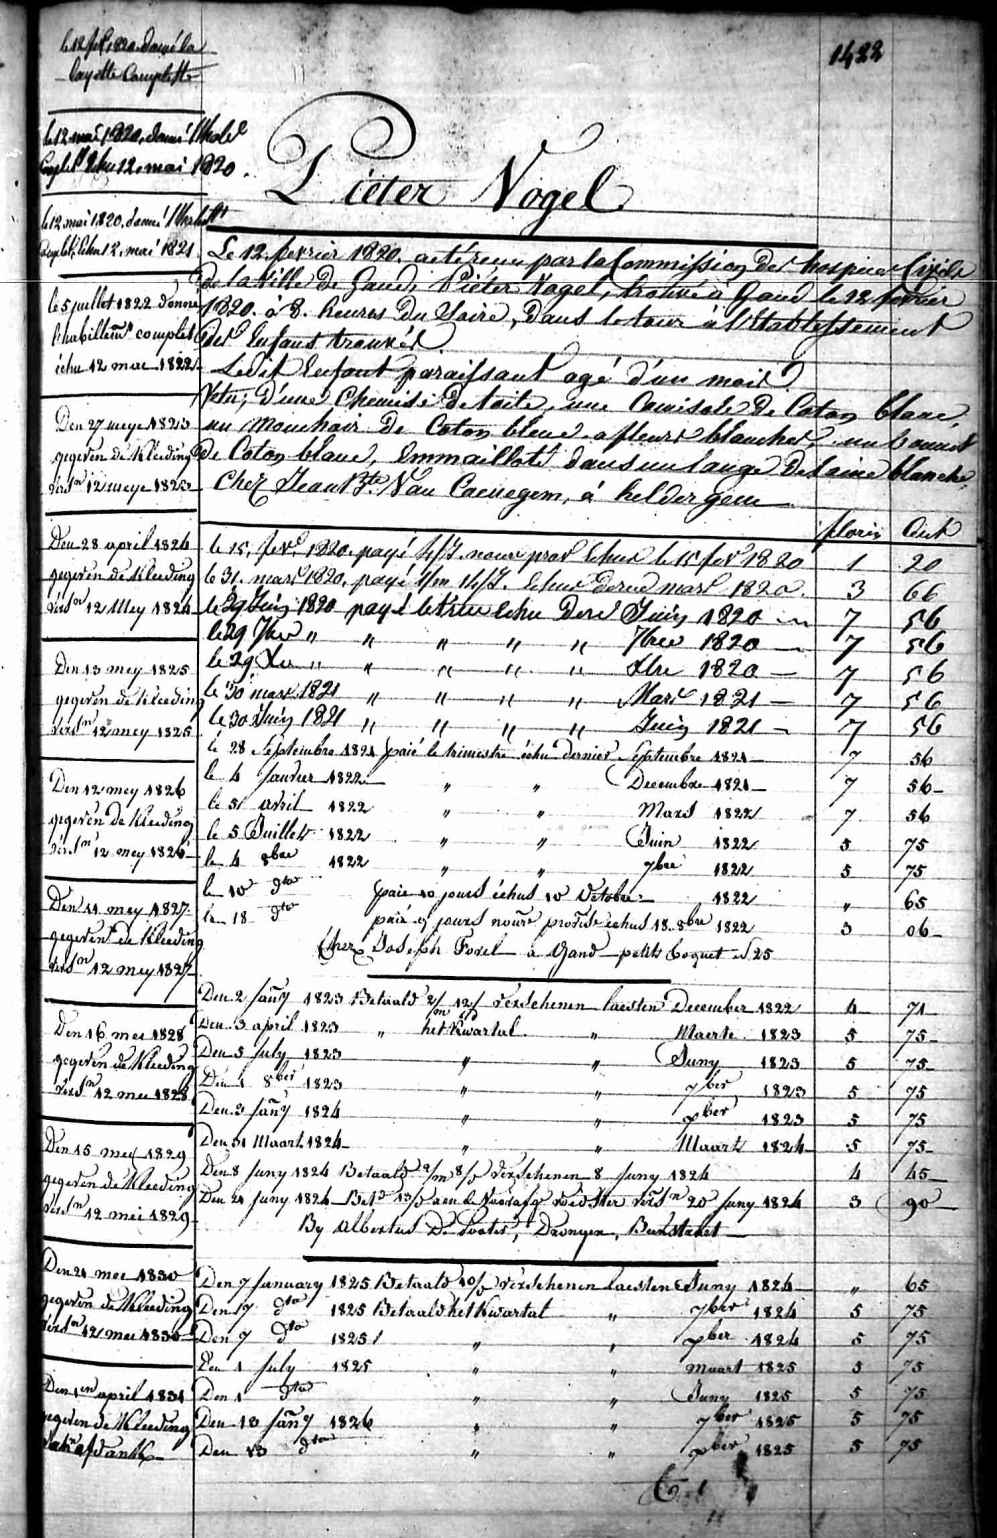 1422
le 12 fev. 1820. donné la
layette Complette
le 12 mai 1820. donné l'hable
Complet Echu 12. mai 1820.
le 12 mai 1820. donné l'
Complet, Echu 12. mai 1821
le 5 juillet 1822 donné
l'habillemt complet
échu 12 mai 1822
Den 27 meye 1823
gegeven de Kleeding
versn 12 meye 1823
Den 28 april 1824
gegeven de Kleeding
versn 12 Mey 1824
Den 13 mey 1825
gegeven de Kleeding
versn 12 mey 1825
Den 12 mey 1826
gegeven de Kleeding
versn 12 mey 1826
Den 11 mey 1827
gegeven de Kleeding
versn 12 mey 1827
Den 16 mei 1828
gegeven de Kleeding
versn 12 mei 1828
Den 15 mey 1829
gegeven de Kleeding
versn 12 mei 1829
Den 21 mei 1830
gegeven de Kleeding
versn 12 mei 1830
Den 1en april 1831
gegeven de Kleeding
Piéter Nogel
Le 12. fevrier 1820. a été reçu par la Commission des hospices Civils
de la Ville de Gand, Piéter Nogel, trouvé à Gand le 12 fevrier
1820. à 8. heures du Soire, dans le tour à l'Etablissement
des Enfans trouvés
Ledit Enfant paraissant agé d'un mois
Vetu; d'une Chemise de toile, une Camisole de Coton blanc,
un mouchoir de Coton bleue à fleurs blanches un bonnet
de Coton blanc, Emmailloté dans un lange de laine blanche
Chez Jean Bte. Van Caenegem, à heldergem
florin Cent
le 15. fevr. 1820. payé 4/J. nour prov Echus le 15 fevr 1820 1 20
le 31. mars 1820. payé 1/m 14/J. Echus dernr mars 1820. 3 66
le 29 Juin 1820 payé le trim echu Derr Juin 1820 7 56
le 29 7bre " " " " 7bre 1820 7 56
le 29 Xbre " " " " Xbre 1820 7 56
le 30 mars 1821 " " " " Mars 1821 7 56
le 30 Juin 1821 " " " " Juin 1821 7 56
le 28 Septembre 1821 paié le trimestre échu dernier Septembre 1821 7 56
le 4 Janvier 1822 " " Decembre 1821 7 56
le 5 avril 1822 " " Mars 1822 7 56
le 5 Juillet 1822 " " Juin 1822 5 75
le 4 8bre 1822 " " 7bre 1822 5 75
le 10 dto paié 10 jours échus 10 Octobre 1822 " 65
le 18 dto paié 9 jours nour provre échus 18. 8bre 1822 3 06
Chez Joseph Forel à Gand petit Coquet S 25
Den 2 Jany 1823 Betaald 2/m 12/d verschenen laesten December 1822 4 71
Den 3 april 1823 " het Kwartal " Maerte 1823 5 75
Den 5 July 1823 " " Juny 1823 5 75
Den 1 8ber 1823 " " 7ber 1823 5 75
Den 3 Jany 1824 " " Xber 1823 5 75
Den 31 Maart 1824 " " Maart 1824 5 75
Den 8 Juny 1824 Betaald 2/m 8/d verschenen 8 Juny 1824 4 45
Den 21 Juny 1824 versn 20 Juny 1824 3 90
By Albertus De Pooter, Drongen,
Den 7 January 1825 Betaald 10/d verschenen laesten Juny 1824 " 65
Den 7 dto 1825 Betaald het Kwartal " 7ber 1824 5 75
Den 7 dto 1825 " " Xber 1824 5 75
Den 1 July 1825 " " maart 1825 5 75
Den 1 dto " " Juny 1825 5 75
Den 13 Jany 1826 " " 7ber 1825 5 75
Den 13 dto " " Xber 1825 5 75